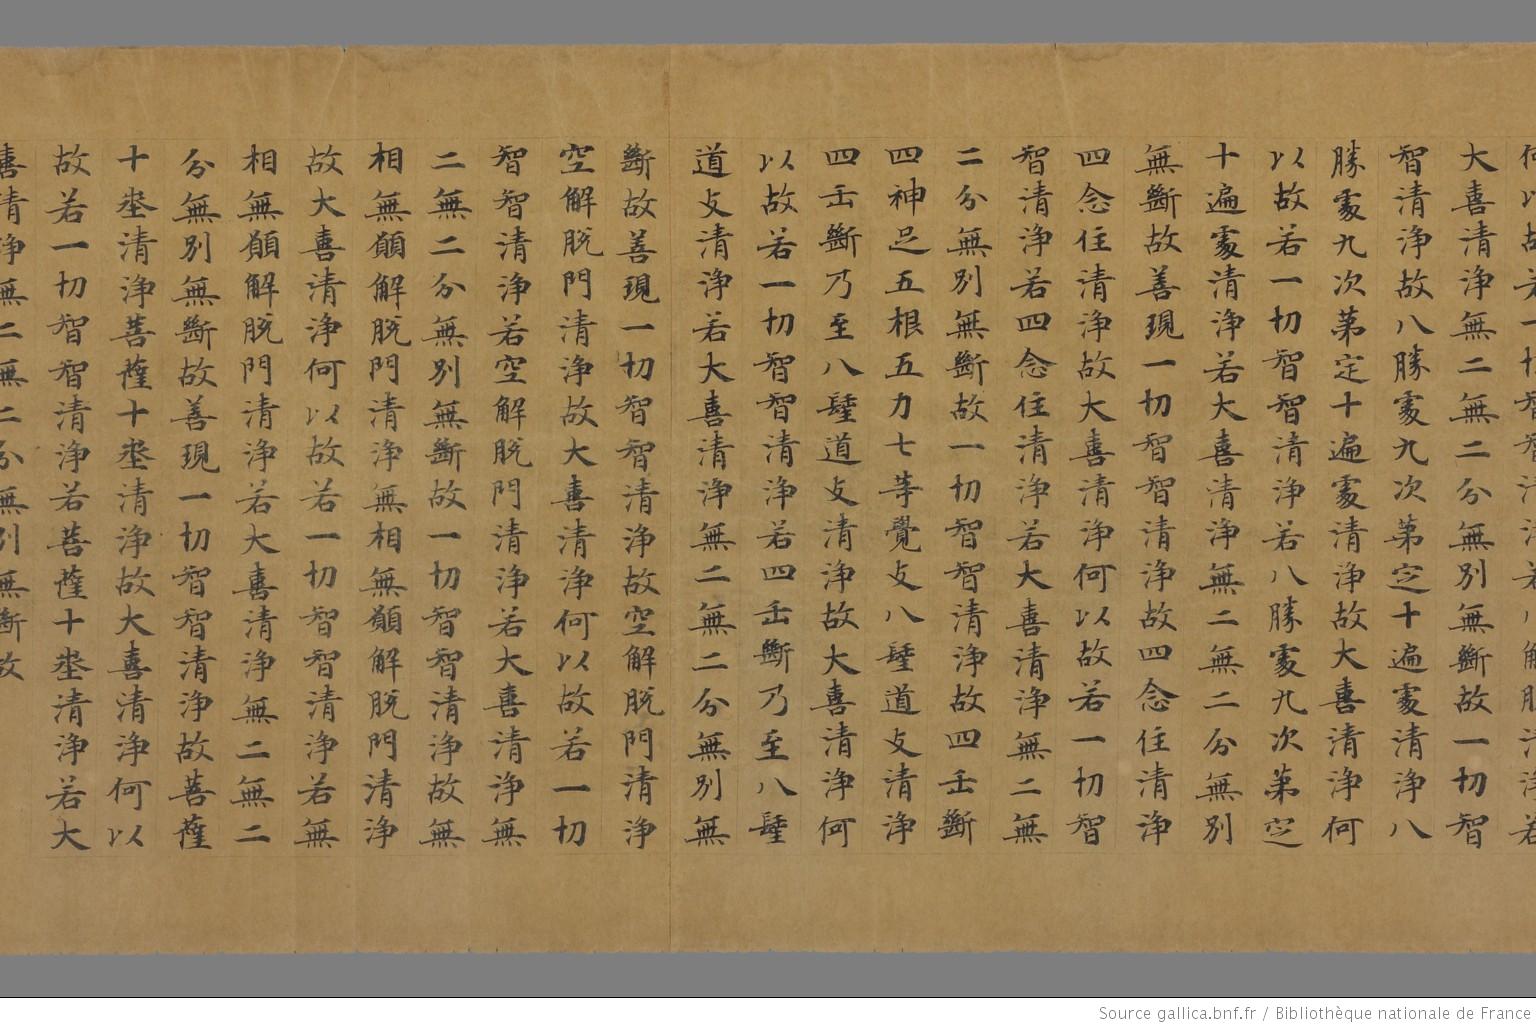 何以故若一切智智清浄若八解脱清浄若
大喜清浄無二無二分無別無斷故一切智
智清浄故八勝處九次第定十遍處清浄八
勝處九次第定十遍處清浄故大喜清浄何
以故若一切智智清浄若八勝處九次第定
十遍處清浄若大喜清浄無二無二分無別
無斷故善現一切智智清浄故四念住清浄
四念住清浄故大喜清浄何以故若一切智
智清浄若四念住清浄若大喜清浄無二無
二分無別無斷故一切智智清浄故四正斷
四神足五根五力七等覺支八聖道支清浄
四正斷乃至八聖道支清浄故大喜清浄何
以故若一切智智清浄若四正斷乃至八聖
道支清浄若大喜清浄無二無二分無別無
斷故善現一切智智清浄故空解脱門清浄
空解脱門清浄故大喜清浄何以故若一切
智智清浄若空解脱門清浄若大喜清浄無
二無二分無別無斷故一切智智清浄故無
相無願解脱門清浄無相無願解脱門清浄
故大喜清浄何以故若一切智智清浄若無
相無願解脱門清浄若大喜清浄無二無二
分無別無斷故善現一切智智清浄故菩薩
十埊清浄菩薩十埊清浄故大喜清浄何以
故若一切智智清浄若菩薩十埊清浄若大
喜清浄無二無二分無別無斷故
Source gallica.bnf.fr / Bibliothèque nationale de France